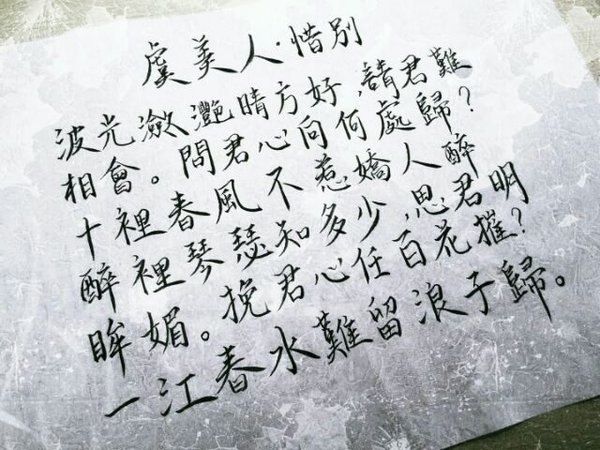 虞美人·惜別
波光瀲灩晴方好,請君難
相會。問君心向何處歸?
十裡春風不惹嬌人醉
醉裡琴瑟知多少,思君明
眸媚。挽君心任百花摧?
一江春水難留浪子歸。